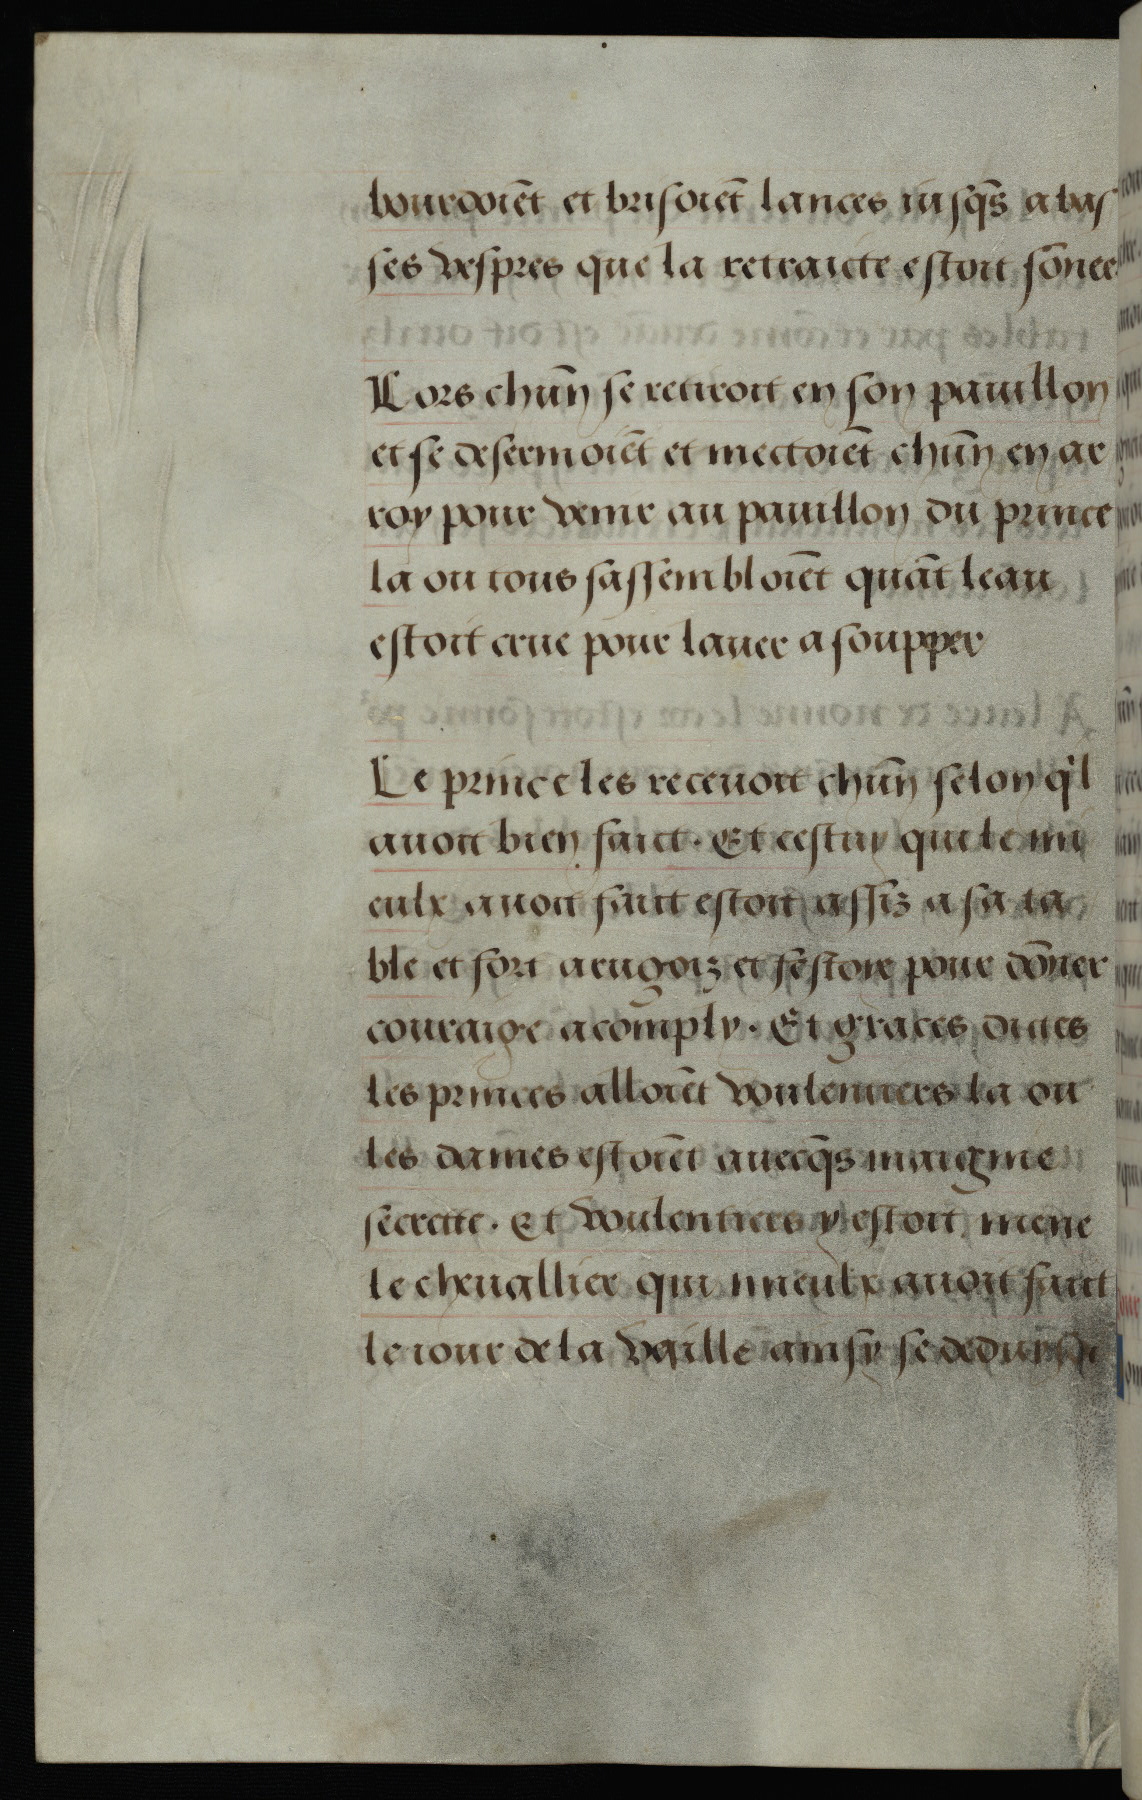 bourdoiẽt et brisoiẽt lances iusq̃s a bas
ses vespres que la retraicte estoit sõnee
Lors chũn se retiroit en son pauillon
et se desermoiẽt et mectoiẽt chũn en ar
roy pour venir au pauillon du prince
la ou tous sassembloiẽt quãt leau
estoit crue pour lauer a soupper
Le prince les receuoit chũn selon q'l
auoit bien faict. Et cestuy qui le mi
eulx auoit faict estoit assiz a sa ta
ble et fort arugoiz et festoie pour dõner
couraige acomply. Et graces dictes
les princes alloiẽt voulentiers la ou
les dames estoiẽt auecq̃s maignie
secrette. Et voulentiers y estoit mene
le cheuallier qui mieulx auoit faict
le iour de la vaille ainsy se